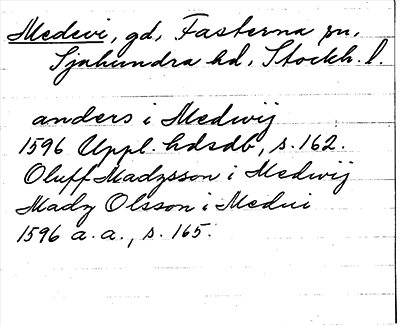 Medevi, gd, Fasterna sn,
Sjuhundra hd, Stockh. l.
anders i Medwij
1596 Uppl. hdsdb, s. 162.
Oluff Madzsson i Medwij
Madz Olsson i Medui
1596 a. a., s. 165.